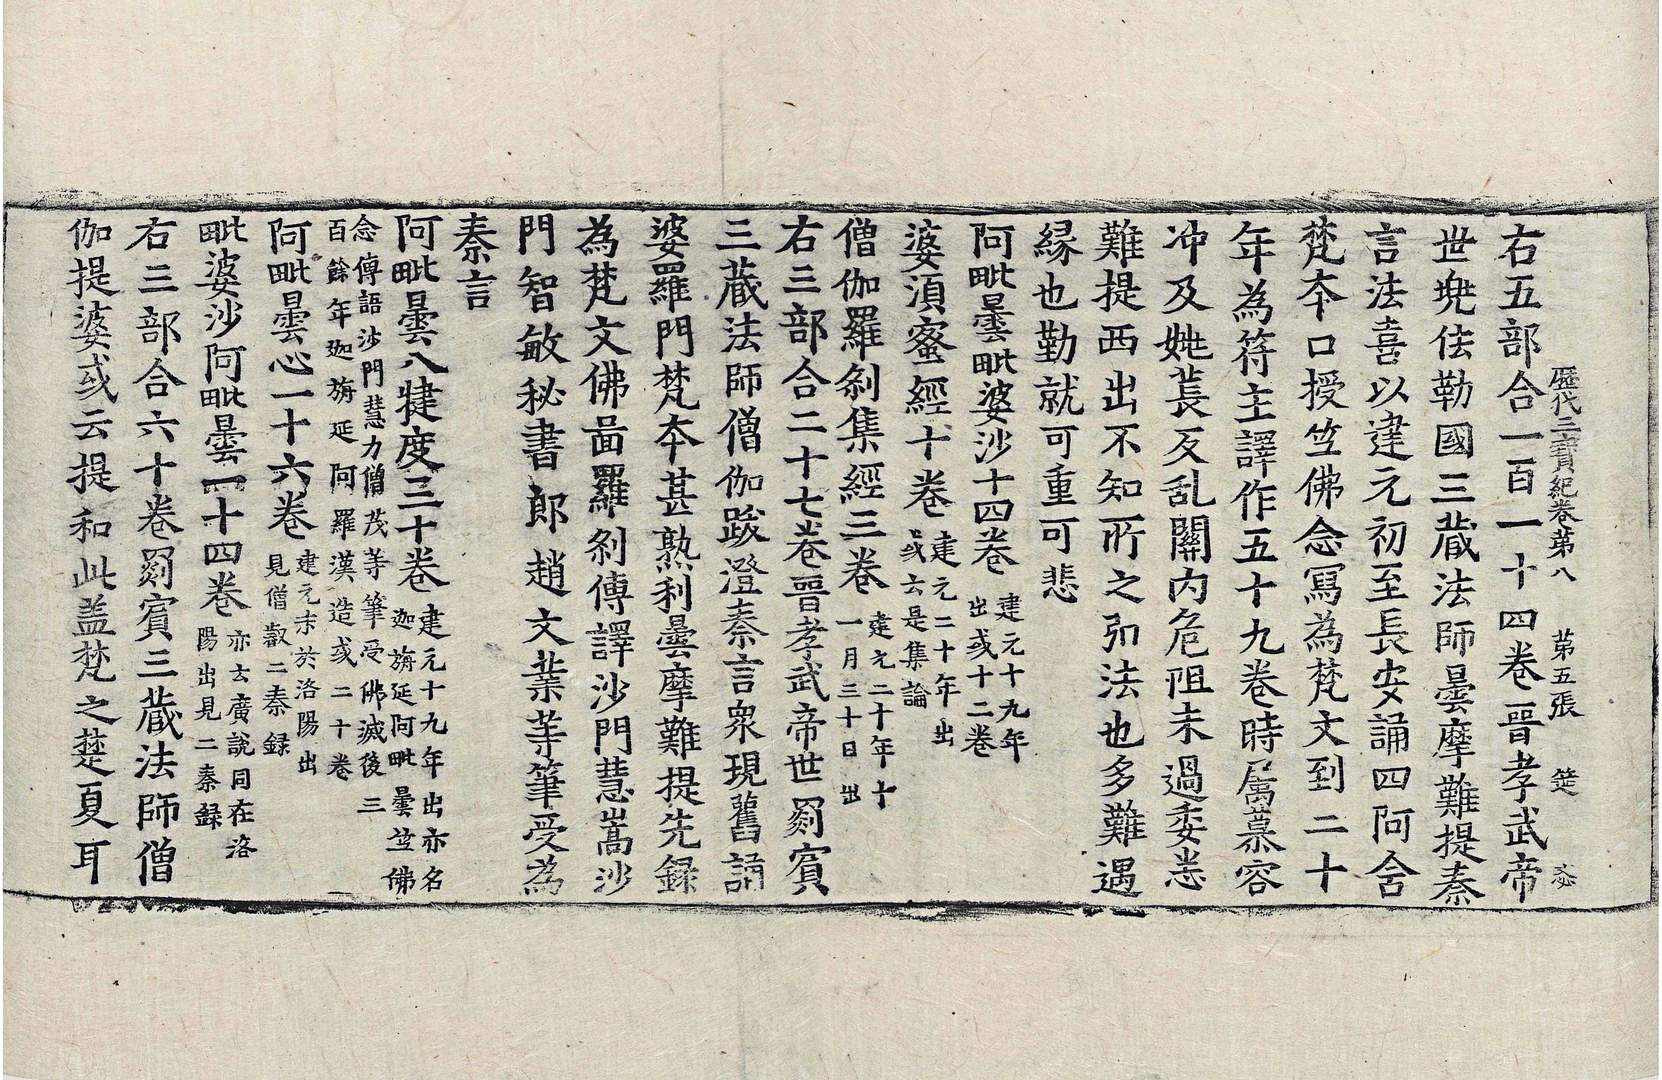 歷代三寶紀卷第八　第五張　楚
右五部合一百一十四卷晉孝武帝
世兠佉勒國三藏法師曇摩難提秦
言法喜以建元初至長安誦四阿含
梵夲口授竺佛念冩為梵文到二十
年為苻主譯作五十九卷時属慕容
冲及姚萇反乱關内危阻未過委悉
難提西出不知所之弘法也多難遇
緣也勤就可重可悲
阿毗曇毗婆沙十四卷建元十九年
出或十二卷
婆湏蜜經十卷建元二十年出
或云是集論
僧伽羅剎集經三卷建元二十年十
一月三十日出
右三部合二十七卷晉孝武帝世罽賔
三藏法師僧伽跋澄秦言衆現舊誦
婆羅門梵夲甚熟利曇摩難提先録
為梵文佛啚羅剎傳譯沙門慧嵩沙
門智敏秘書郎趙文業等筆受為
秦言
阿毗曇八犍度三十卷建元十九年出亦名
迦旃延阿毗曇竺佛
念傳語沙門慧力僧茂等筆受佛滅後三
百餘年迦旃延阿羅漢造或二十卷
阿毗曇心一十六卷建元末於洛陽出
見僧叡二秦録
毗婆沙阿毗曇一十四卷亦云廣說同在洛
陽出見二秦録
右三部合六十卷罽賔三藏法師僧
伽提婆或云提和此盖梵之楚夏耳